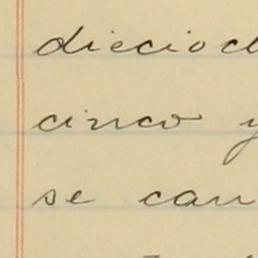 diecioc
cinco y
se can